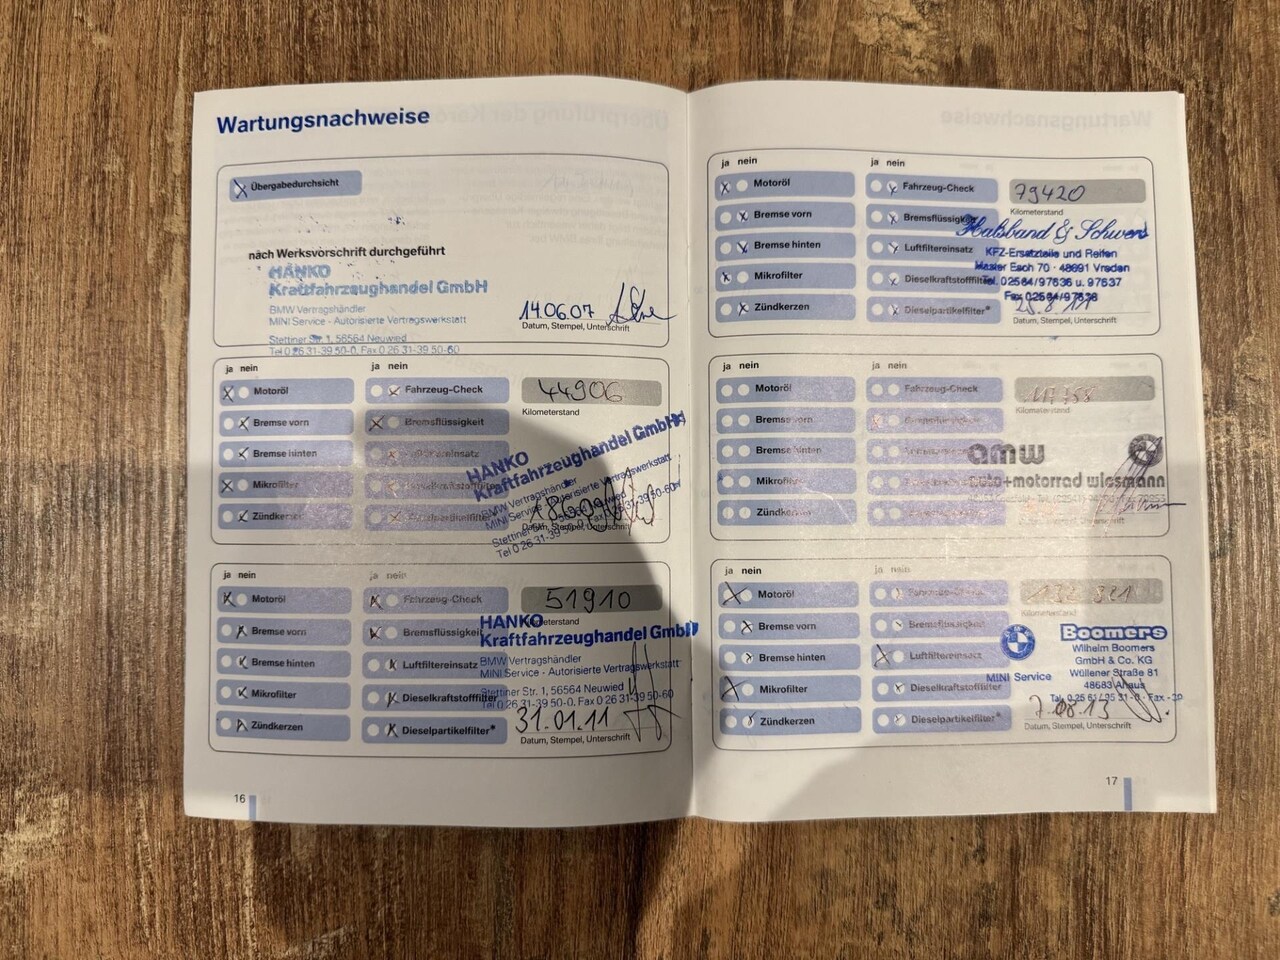 Wartungsnachweise
Übergabedurchsicht
nach Werksvorschrift durchgeführt
HANKO
Kraftfahrzeughandel GmbH
BMW Vertragshändler
MINI Service - Autorisierte Vertragswerkstatt
Stettiner Str. 1, 56564 Neuwied
Tel 0 26 31-39 50-0, Fax 0 26 31-39 50-60
14.06.07
Datum, Stempel, Unterschrift
ja nein
ja nein
Motoröl
Fahrzeug-Check
44906
Kilometerstand
Bremse vorn
Bremsflüssigkeit
Bremse hinten
Mikrofilter
Zündkerzen
HANKO
Kraftfahrzeughandel GmbH
BMW Vertragshändler
MINI Service - Autorisierte Vertragswerkstatt
Stettiner Str. 1, 56564 Neuwied
Tel 0 26 31-39 50-0, Fax 0 26 31-39 50-60
Datum, Stempel, Unterschrift
ja nein
ja nein
Motoröl
Fahrzeug-Check
51910
Kilometerstand
Bremse vorn
Bremsflüssigkeit
Bremse hinten
Luftfiltereinsatz
Mikrofilter
Dieselkraftstofffilter
Zündkerzen
Dieselpartikelfilter*
HANKO
Kraftfahrzeughandel GmbH
BMW Vertragshändler
MINI Service - Autorisierte Vertragswerkstatt
Stettiner Str. 1, 56564 Neuwied
Tel 0 26 31-39 50-0, Fax 0 26 31-39 50-60
31.01.11
Datum, Stempel, Unterschrift
16
ja nein
ja nein
Motoröl
Fahrzeug-Check
79420
Kilometerstand
Bremse vorn
Bremsflüssigkeit
Bremse hinten
Luftfiltereinsatz
Mikrofilter
Dieselkraftstofffilter
Zündkerzen
Dieselpartikelfilter*
KFZ-Ersatzteile und Reifen
Esch 70 · 48691 Vreden
Tel. 02564/97636 u. 97637
Fax 02564/97638
Datum, Stempel, Unterschrift
ja nein
ja nein
Motoröl
Fahrzeug-Check
Kilometerstand
Bremse vorn
Bremsflüssigkeit
Bremse hinten
Mikrofilter
Zündkerzen
amw
auto+motorrad wiesmann
ja nein
ja nein
Motoröl
Kilometerstand
Bremse vorn
Bremsflüssigkeit
Bremse hinten
Luftfiltereinsatz
Mikrofilter
Dieselkraftstofffilter
Zündkerzen
Dieselpartikelfilter*
BMW
MINI Service
Boomers
Wilhelm Boomers
GmbH & Co. KG
Wüllener Straße 81
48683 Ahaus
7.08.13
Datum, Stempel, Unterschrift
17